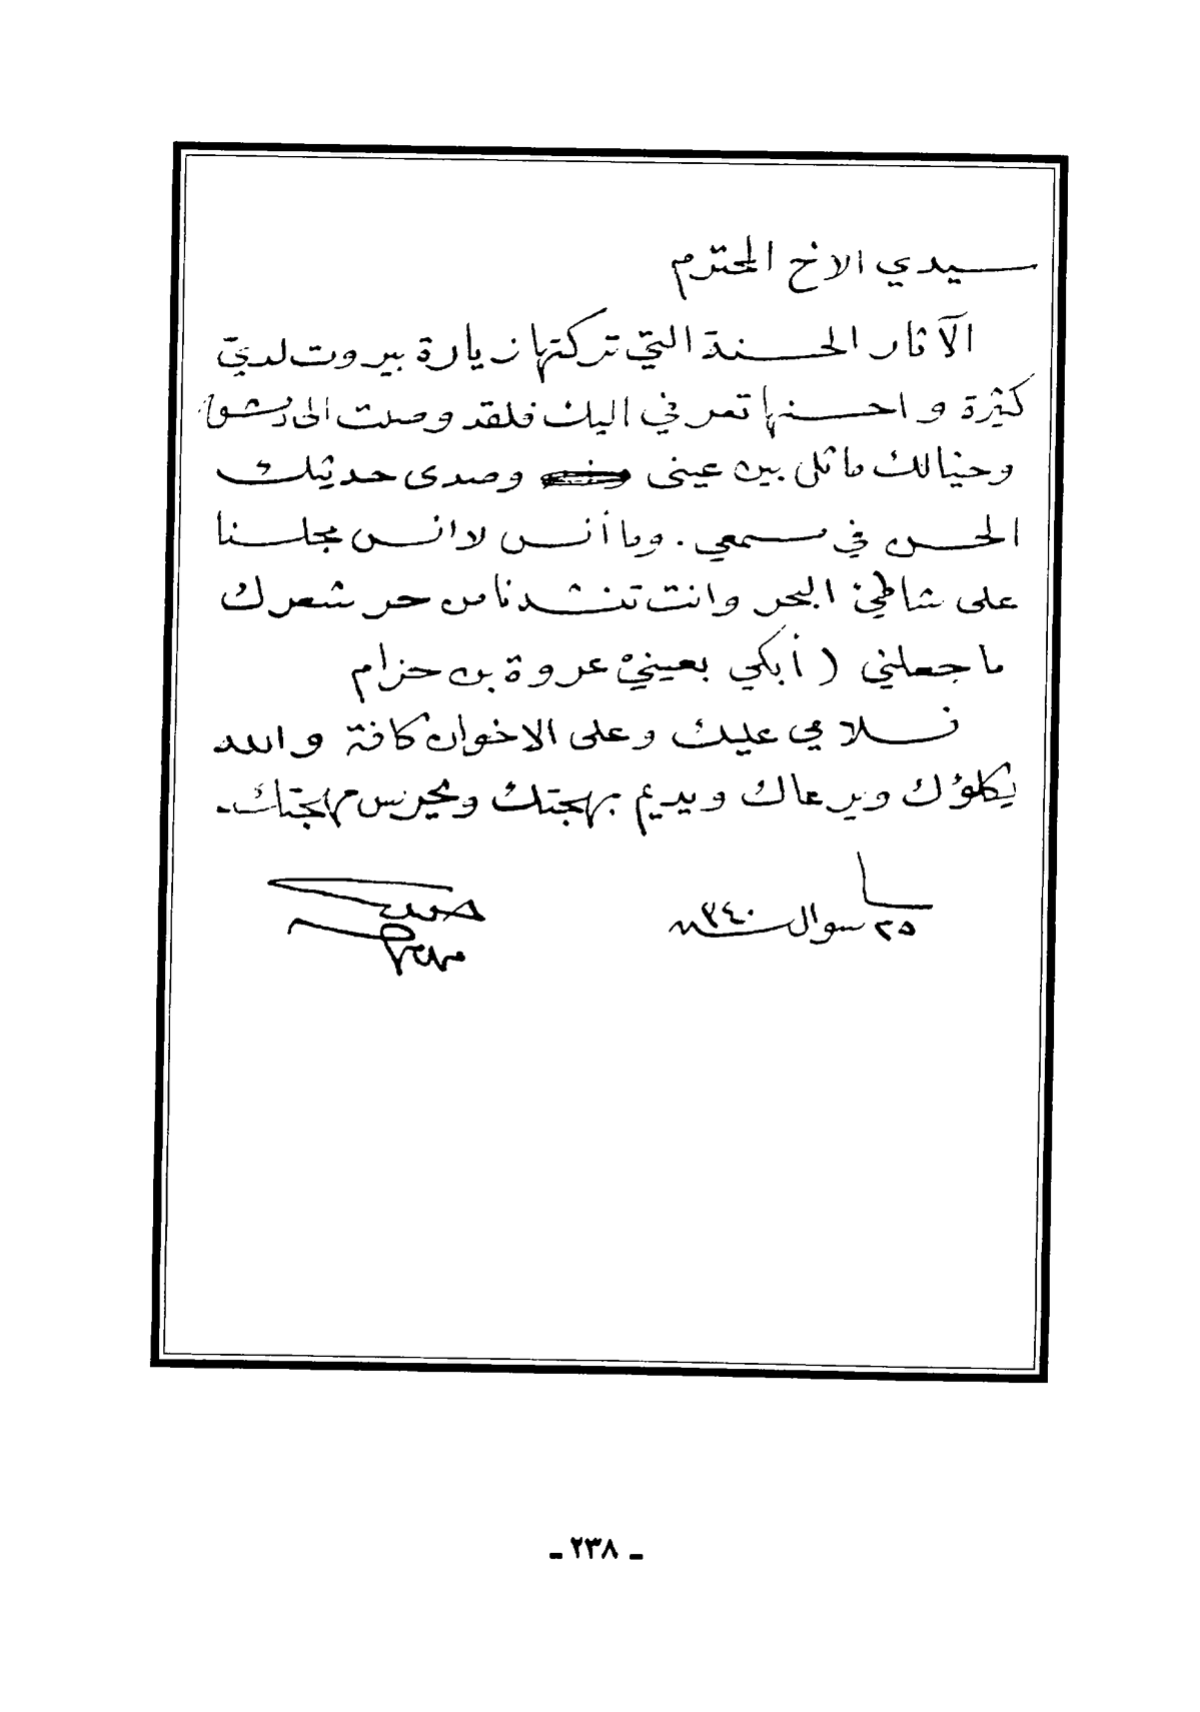 سيدي الاخ المحترم
الآثار الحسنة التي تركتها زيارة بيروت لديّ
كثيرة واحسنها تعرفي اليك فلقد وصلت الى دمشق
وخيالك ماثل بين عينى وصدى حديثك
الحسن في سمعي . وما أنس لا انس مجلسنا
على شاطئ البحر وانت تنشدنا من حر شعرك
ما جعلني ( أبكي بعينيْ عروة بن حزام
فسلامي عليك وعلى الاخوان كافة والله
يكلؤك ويرعاك ويديم بهجتك ويحرس مهجتك .
٢٥ شوال سنة ٣٤٠
ـ ٢٣٨ ـ